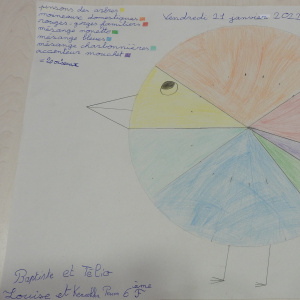 pinsons des arbres
moineaux domestiques
rouges-gorges familiers
mésange nonette
mésange bleues
mésange charbonnières
accenteur mouchet
Vendredi 21 janvier 202
Baptiste et Télio
Louise et 6 ème F